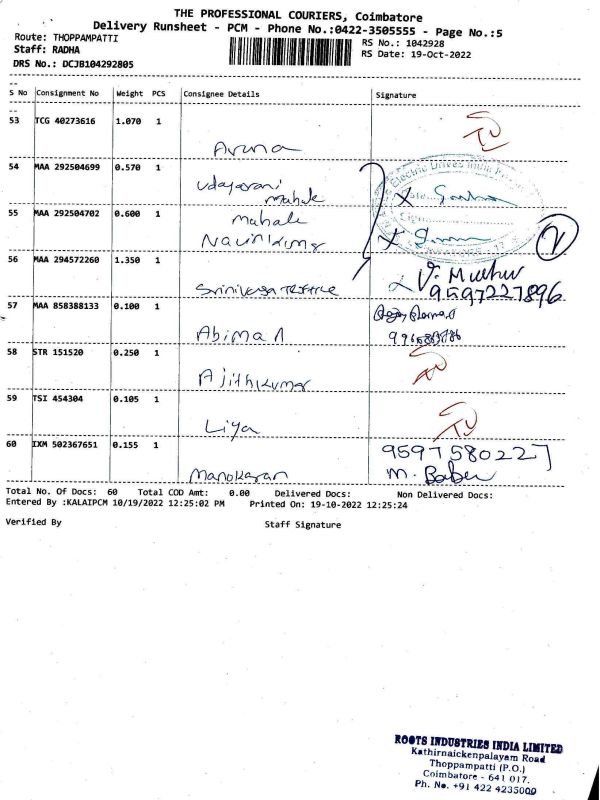 THE PROFESSIONAL COURIERS, Coimbatore
Delivery Runsheet - PCM - Phone No.:0422-3505555 - Page No.:5
Route: THOPPAMPATTI
RS No.: 1042928
Staff: RADHA
RS Date: 19-Oct-2022
DRS No.: DCJB104292805
S No Consignment No Weight PCS Consignee Details Signature
53 TCG 40273616 1.070 1
Aruna
54 MAA 292504699 0.570 1
Udayarani
Mahale
55 MAA 292504702 0.600 1
Mahale
Navinkumar
56 MAA 294572260 1.350 1
V. Muthu
9597227896
Srinivasa
57 MAA 858388133 0.100 1
Abima A
58 STR 151520 0.250 1
Ajithkumar
59 TSI 454304 0.105 1
Liya
60 IXM 502367651 0.155 1
9597580227
M. Baber
Manokaran
Total No. Of Docs: 60 Total COD Amt: 0.00 Delivered Docs: Non Delivered Docs:
Entered By :KALAIPCM 10/19/2022 12:25:02 PM Printed On: 19-10-2022 12:25:24
Verified By Staff Signature
ROOTS INDUSTRIES INDIA LIMITED
Kathirnaickenpalayam Road
Thoppampatti (P.O.)
Coimbatore - 641 017.
Ph. No. +91 422 4235000